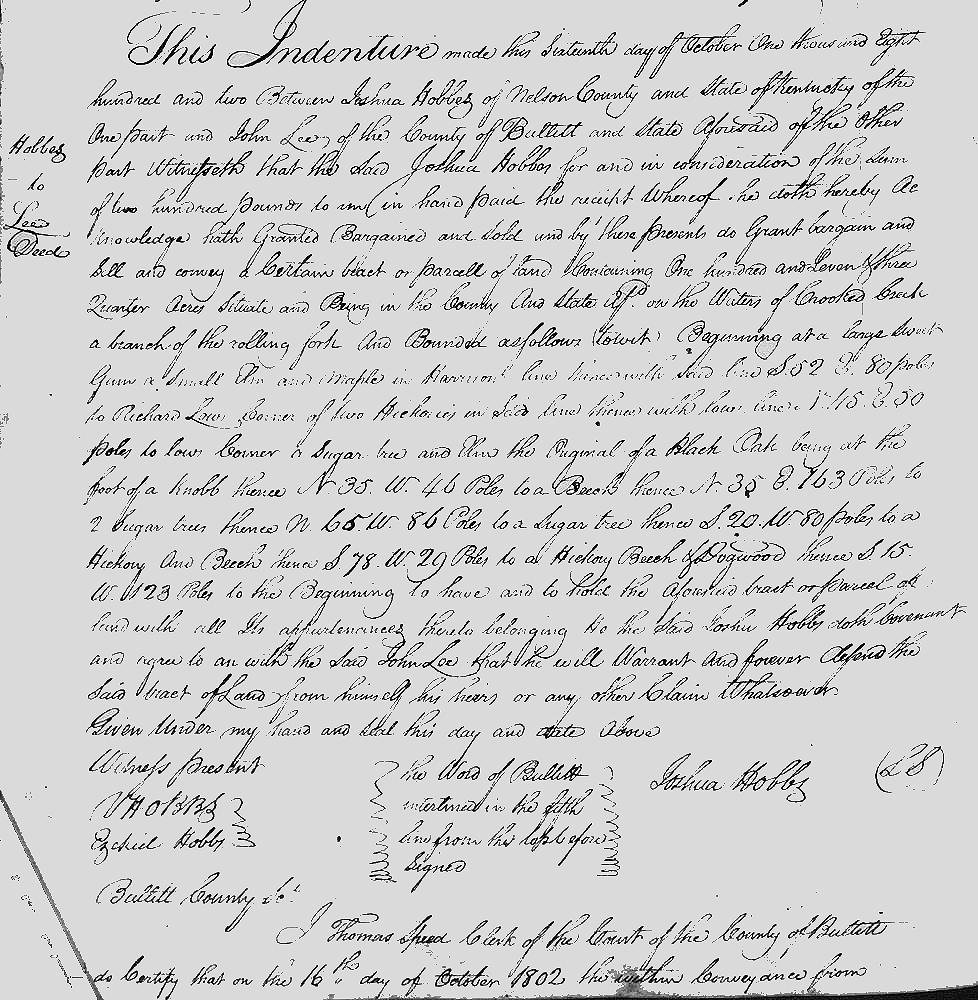 This Indenture made this Sixteenth day of October One thousand Eight
hundred and two Between Joshua Hobbs of Nelson County and State of Kentucky of the
One part and John Lee of the County of Bullitt and State Aforesaid of the Other
part Witnesseth that the Said Joshua Hobbs for and in consideration of the Sum
of two hundred pounds to me in hand paid the receipt Whereof he doth hereby Ac
knowledge hath Granted Bargained and Sold and by these presents do Grant bargain and
Sell and convey a Certain tract or parcell of land Containing One hundred and Seven & three
Quarter Acres Situate and Being in the County And State afsd on the Waters of Crooked Creek
a branch of the rolling fork And Bounded as follows (towit) Beginning at a large Sweet
Gum a Small Elm and maple in Harrisons line thence with Said line S. 52 E. 80 poles
to Richard Laws Corner of two Hickories in Said line thence with laws line N. 45. E. 50
poles to laws Corner a Sugar tree and Elm the Original of a Black Oak being at the
foot of a Knobb thence N. 35. W. 46 Poles to a Beech thence N. 35 E. 163 Poles to
2 Sugar trees thence N. 65. W. 86 Poles to a Sugar tree thence S. 20. W. 80 poles to a
Hickory And Beech thence S 78. W. 29 Poles to a Hickory Beech & Dogwood thence S. 15.
W. 123 Poles to the Beginning to have and to hold the Aforesaid tract or parcel of
land with all Its appurtenances thereto belonging He the Said Joshu Hobbs doth Covenant
and agree to an with the Said John Lee that he will Warrant And forever defend the
Said tract of Land from himself his heirs or any other Claim Whatsoever
Given Under my hand and Seal this day and date Above
Hobbs
to
Lee
Deed
Witness present
V HOBBS
Ezekiel Hobbs
the Word of Bullitt
interlined in the fifth
line from the last before
Signed
Joshua Hobbs (LS)
Bullitt County Sct
I Thomas Speed Clerk of the Court of the County of Bullitt
do Certify that on the 16th day of October 1802 the within Conveyance from